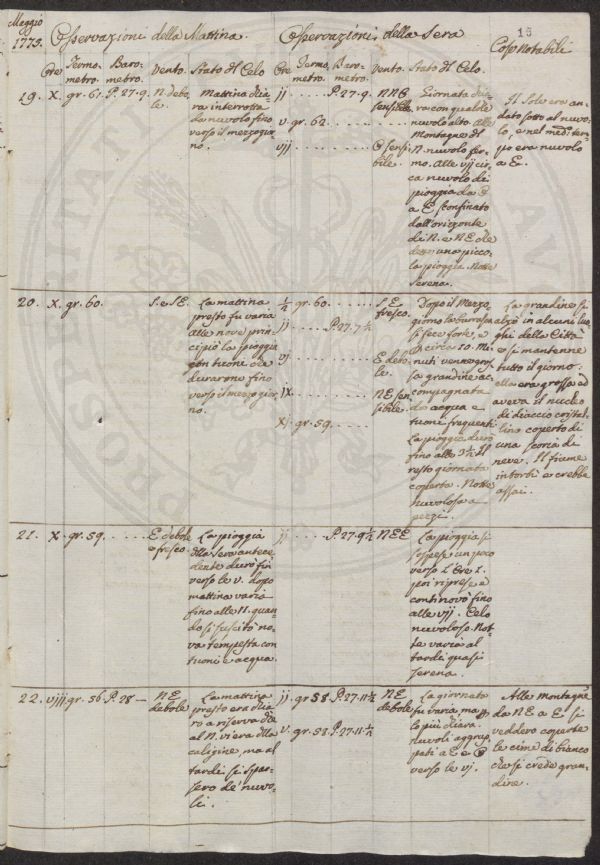 Maggio
1775. Osservazioni della Mattina. Osservazioni della Sera
15
Cose Notabili
Ore Termo- Baro- Vento. Stato del Celo Ore Termo- Baro- Vento. Stato del Celo.
metro. metro. metro. metro.
19. X. gr. 61. P. 27. 9. N. debo-
le.
Mattina chia-
ra interrotta
da nuvolo fino
verso il mezzogior-
no.
ij . . . . . . P. 27. 9
v. gr. 62 . . . . .
vij
sensibile.
sensi-
bile.
Giornata chia-
ra con qualche
nuvolo alto. Alle
Montagne del
N. nuvolo fer-
mo. Alle vij cir-
ca nuvolo di
pioggia da
a E sconfinato
dall'orizonte
di N. e NE che
dette una picco-
la pioggia. Notte
serena.
Il Sole era an-
dato sotto al nuvo-
lo, e nel med. tem-
po era nuvolo
a E.
20. X. gr. 60. S. e SE.
La mattina
presto fu varia
alle nove prin-
cipiò la pioggia
con tuoni che
durarono fino
verso il mezzo gior-
no.
1/2 gr. 60 . . . . . . SE
fresco.
ij . . . . . P. 27. 7 1/2
vj . . . . . . . E debo-
le.
IX . . . . . . . NE sen-
sibile.
XI gr. 59 . . . . .
Dopo il Mezzo
giorno la burrasca
si fece forte, e
circa 20. Mi-
nuti venne gros-
sa grandine ac-
compagnata
da acqua e
tuoni frequenti
La pioggia durò
fino alle 3 1/2 il
resto giornata
coperta. Notte
nuvolosa a
pezzi.
La grandine si
alzò in alcuni luo-
ghi della Città
e si mantenne
tutto il giorno.
ella era grossa ed
aveva il nucleo
di diaccio cristal-
lino coperto di
una scorza di
neve. Il fiume
intorbi e crebbe
assai.
21. X. gr. 59. . . . . . E debole
e fresco.
La pioggia
della sera antece-
dente durò fin
verso le v. dopo
mattina varia
fino alle 11. quan-
do si suscitò no-
va tempesta con
tuoni e acqua.
ij . . . . . P. 27. 9 1/2 NEE
La pioggia si
sospese un poco
verso l'Ore 2.
poi riprese e
continovò fino
alle vij. Celo
nuvoloso. Not-
te varia al
tardi quasi
serena.
22. viij gr. 56 P. 28 — NE
debole
La mattina
presto era chia-
ra a riserva che
al N. vi era della
caligine, ma al
tardi si spar-
sero de' nuvo-
li.
ij. gr 58. P. 27. 11 1/2 NE
debole
v. gr. 58. P. 27. 11 1/2
La giornata
fu varia ma
lo più chiara.
Nuvoli aggrup-
pati a E e
verso le vj.
Alle montagne
da NE a E si
veddero coperte
le cime di bianco
che si crede gran-
dine.